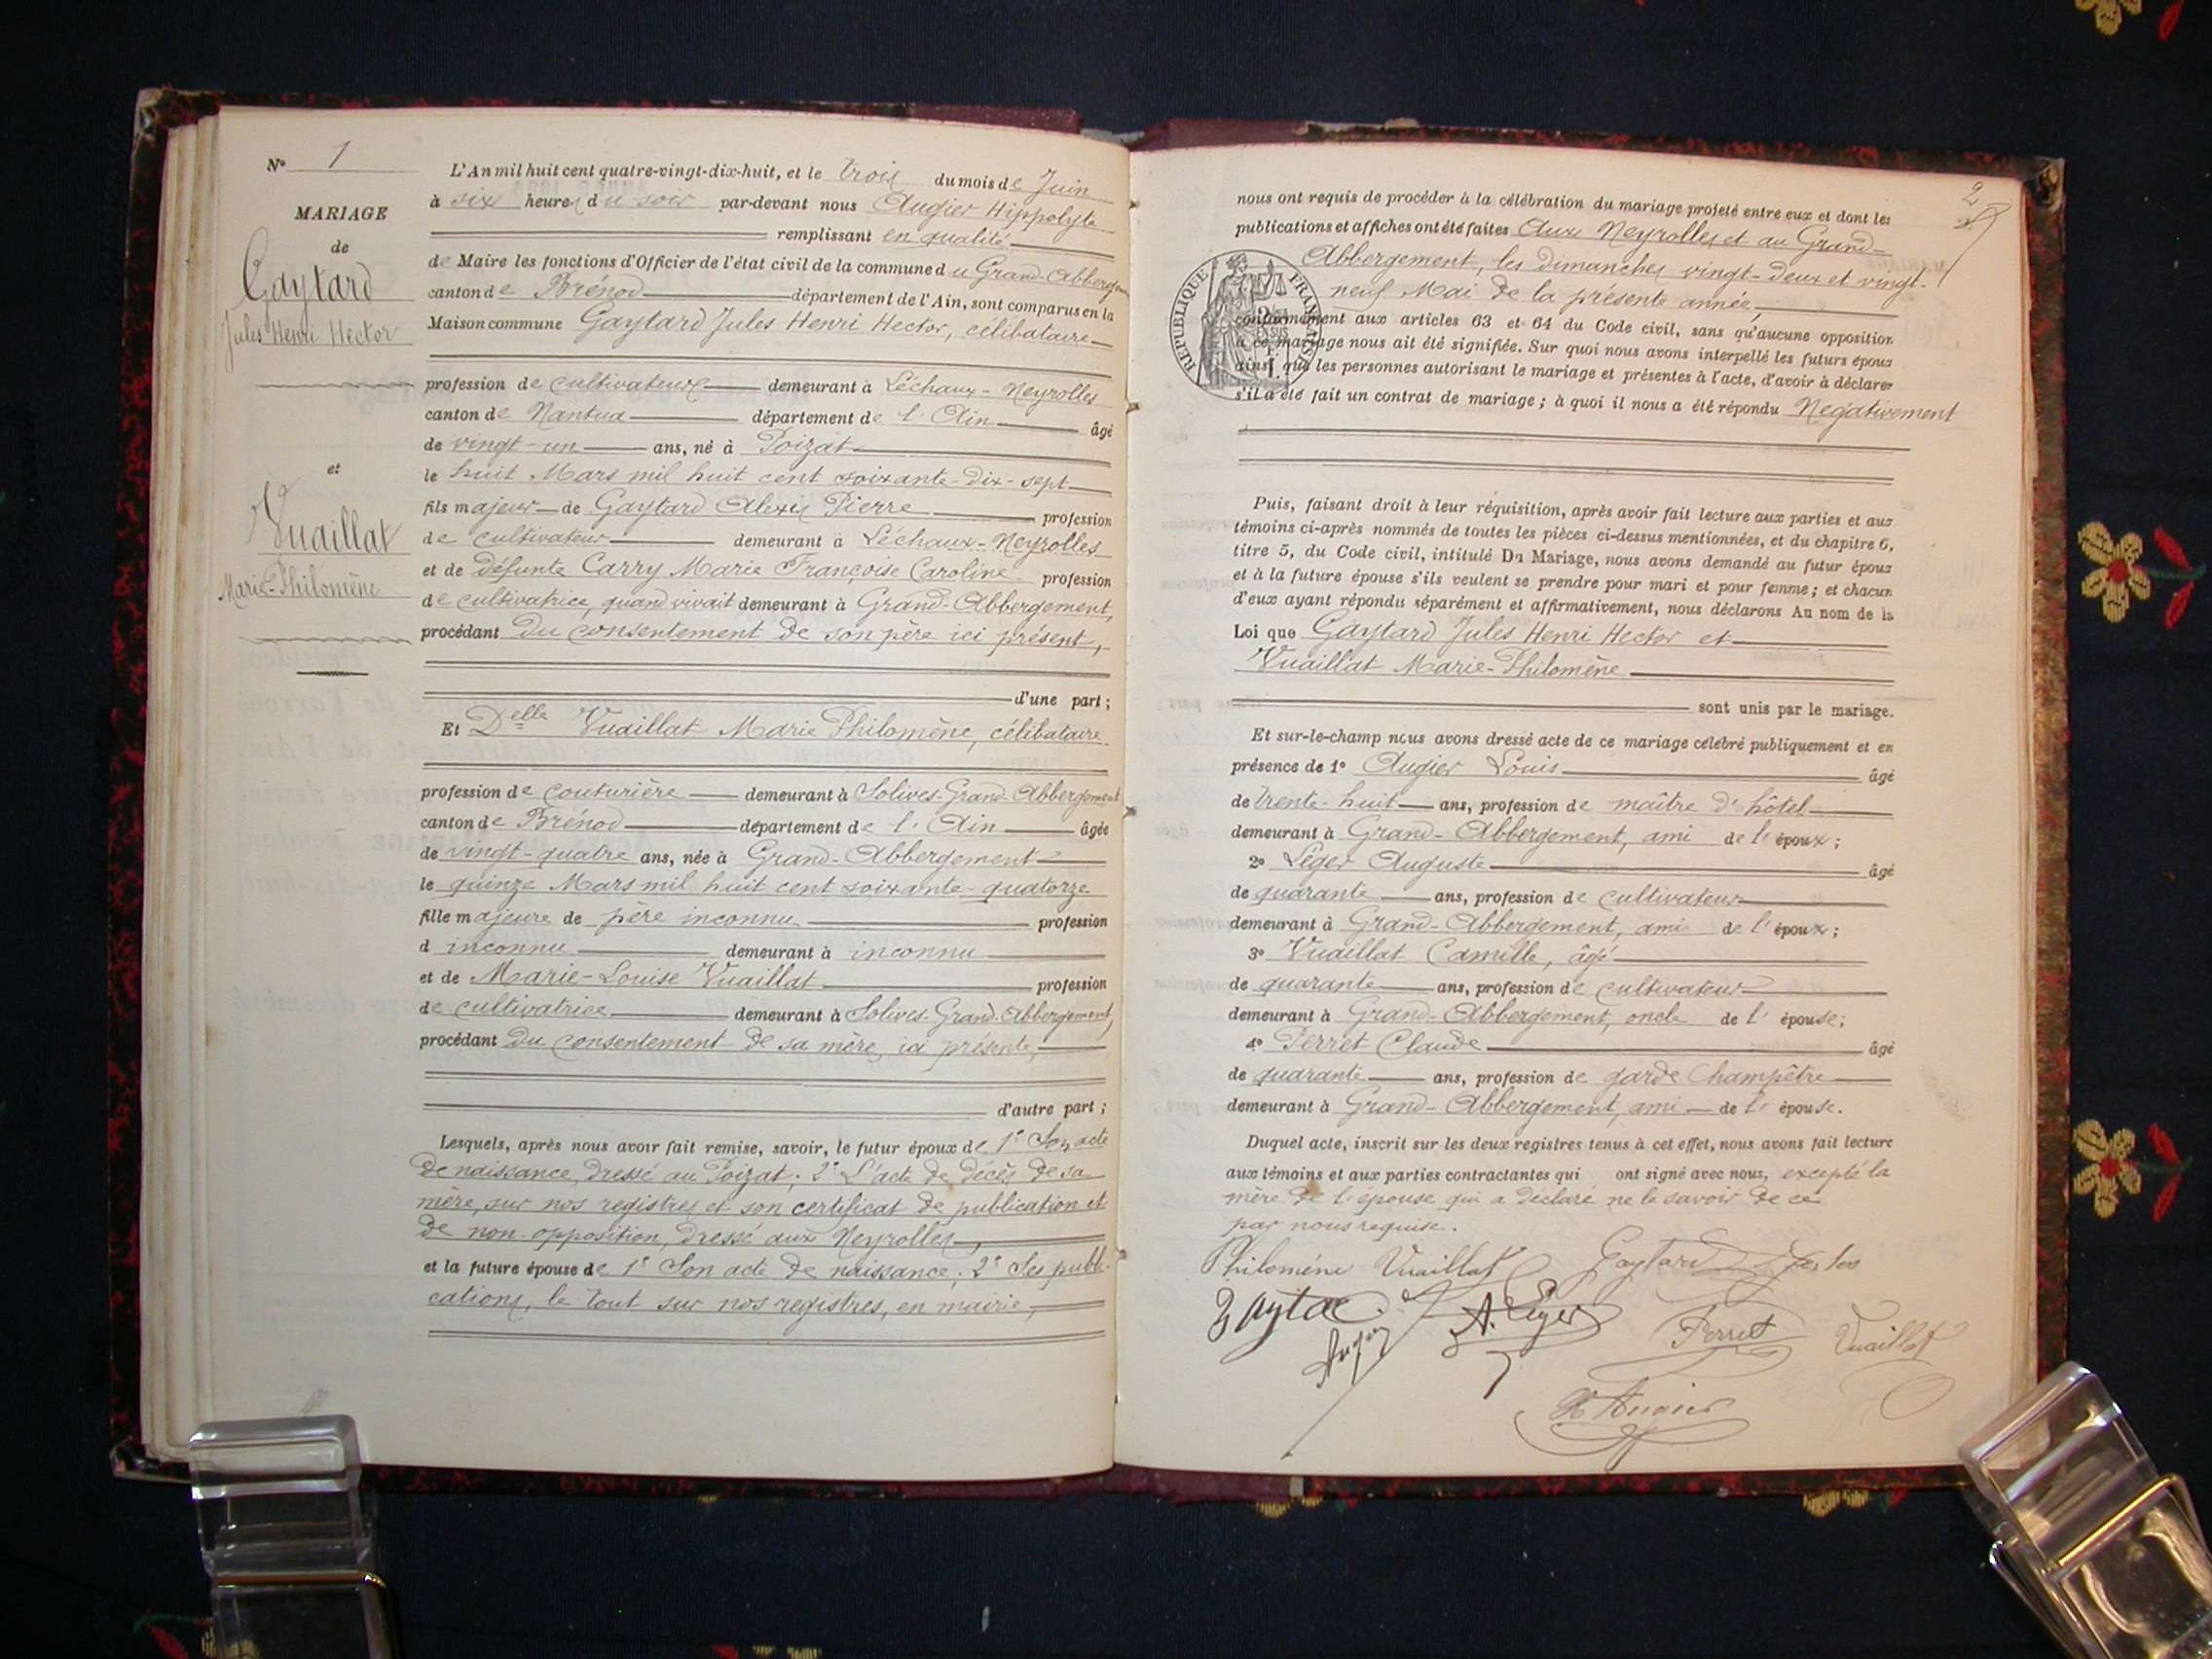 N° 1
MARIAGE
de
Gaytard
Jules Henri Hector
et
Vuaillat
Marie-Philomène
L'An mil huit cent quatre-vingt-dix-huit, et le trois du mois de Juin
à six heures du soir par-devant nous Augier Hippolyte
remplissant en qualité
de Maire les fonctions d'Officier de l'état civil de la commune du Grand-Abbergement
canton de Brénod département de l'Ain, sont comparus en la
Maison commune Gaytard Jules Henri Hector, célibataire
profession de cultivateur demeurant à Léchaux-Neyrolles
canton de Nantua département de l'Ain âgé
de vingt-un ans, né à Poizat
le huit Mars mil huit cent soixante-dix-sept
fils majeur de Gaytard Alexis Pierre profession
de cultivateur demeurant à Léchaux-Neyrolles
et de défunte Carry Marie Françoise Caroline profession
de cultivatrice, quand vivait demeurant à Grand-Abbergement,
procédant du consentement de son père ici présent,
d'une part ;
Et Delle Vuaillat Marie Philomène, célibataire.
profession de couturière demeurant à Solives-Grand-Abbergement
canton de Brénod département de l'Ain âgée
de vingt-quatre ans, née à Grand-Abbergement
le quinze Mars mil huit cent soixante-quatorze
fille majeure de père inconnu profession
d inconnu demeurant à inconnu
et de Marie-Louise Vuaillat profession
de cultivatrice demeurant à Solives-Grand-Abbergement,
procédant du consentement de sa mère, ici présente,
d'autre part ;
Lesquels, après nous avoir fait remise, savoir, le futur époux de 1° Son acte
de naissance, dressé au Poizat ; 2° L'acte de décès de sa
mère, sur nos registres et son certificat de publication et
de non-opposition, dressé aux Neyrolles,
et la future épouse de 1° Son acte de naissance ; 2° Ses publi-
cations, le tout sur nos registres, en mairie,
2
nous ont requis de procéder à la célébration du mariage projeté entre eux et dont les
publications et affiches ont été faites Aux Neyrolles et au Grand-
Abbergement, les dimanches vingt-deux et vingt-
neuf Mai de la présente année,
RÉPUBLIQUE FRANÇAISE
conformément aux articles 63 et 64 du Code civil, sans qu'aucune opposition
à ce mariage nous ait été signifiée. Sur quoi nous avons interpellé les futurs époux
ainsi que les personnes autorisant le mariage et présentes à l'acte, d'avoir à déclarer
s'il a été fait un contrat de mariage ; à quoi il nous a été répondu Négativement
Puis, faisant droit à leur réquisition, après avoir fait lecture aux parties et aux
témoins ci-après nommés de toutes les pièces ci-dessus mentionnées, et du chapitre 6,
titre 5, du Code civil, intitulé Du Mariage, nous avons demandé au futur époux
et à la future épouse s'ils veulent se prendre pour mari et pour femme ; et chacun
d'eux ayant répondu séparément et affirmativement, nous déclarons Au nom de la
Loi que Gaytard Jules Henri Hector et
Vuaillat Marie-Philomène
sont unis par le mariage.
Et sur-le-champ nous avons dressé acte de ce mariage célébré publiquement et en
présence de 1° Augier Louis âgé
de trente-huit ans, profession de maître d'hôtel
demeurant à Grand-Abbergement, ami de l'époux ;
2° Léger Auguste âgé
de quarante ans, profession de cultivateur
demeurant à Grand-Abbergement, ami de l'époux ;
3° Vuaillat Camille, âgé
de quarante ans, profession de cultivateur
demeurant à Grand-Abbergement, oncle de l'épouse ;
4° Perret Claude âgé
de quarante ans, profession de garde Champêtre
demeurant à Grand-Abbergement, ami de l'épouse.
Duquel acte, inscrit sur les deux registres tenus à cet effet, nous avons fait lecture
aux témoins et aux parties contractantes qui ont signé avec nous, excepté la
mère de l'épouse qui a déclaré ne le savoir de ce
par nous requise.
Philomène Vuaillat Gaytard
A. Léger Perret Vuaillat
H Augier